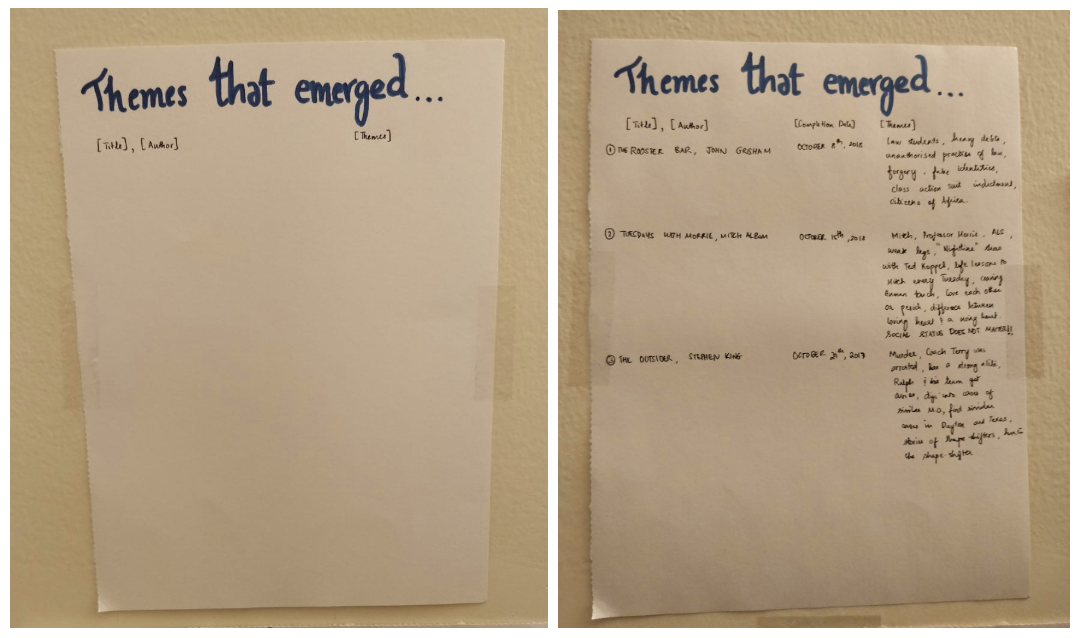 Themes that emerged...
[Title], [Author] [Themes]
Themes that emerged...
[Title], [Author] [Completion Date] [Themes]
① THE ROOSTER BAR, JOHN GRISHAM OCTOBER 8th, 2018 Law students, heavy debts,
unauthorised practice of law,
forgery, fake identities,
class action suit indictment,
citizens of Africa.
② TUESDAYS WITH MORRIE, MITCH ALBUM OCTOBER 15th, 2018 Mitch, Professor Morrie, ALS,
weak legs, "Nightline" show
with Ted Koppel, life lessons to
Mitch every Tuesday, craving
human touch, love each other
or perish, difference between
loving heart & a using heart.
SOCIAL STATUS DOES NOT MATTER!!
③ THE OUTSIDER, STEPHEN KING OCTOBER 20th, 2017 Murder, Coach Terry was
arrested, has a strong alibi,
Ralph & his team get
digs into cases of
similar M.O, find similar
cases in Dayton and Texas,
stories of shape-shifters,
the shape-shifter